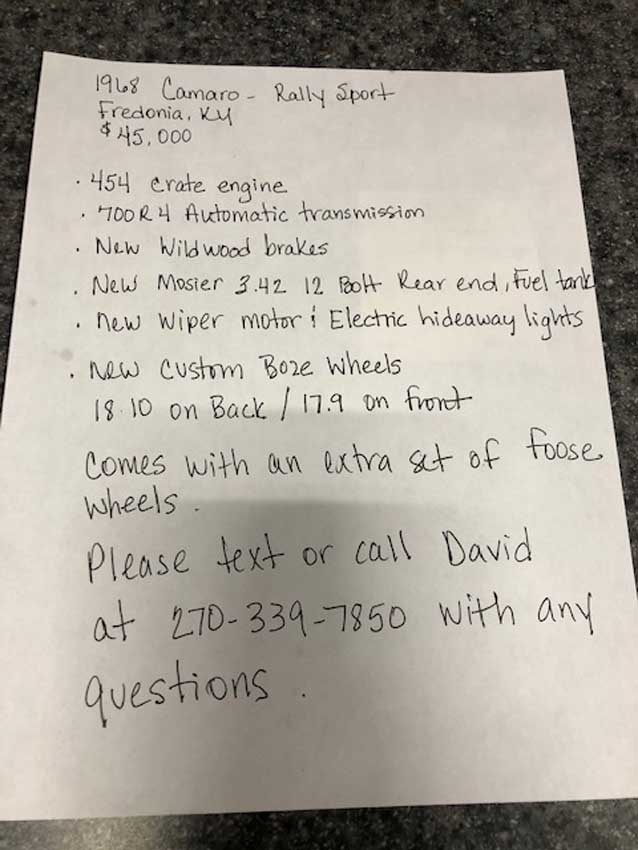 1968 Camaro - Rally Sport
Fredonia, KY
$45,000
· 454 crate engine
· 700R4 Automatic transmission
· New Wildwood brakes
· New Mosier 3.42 12 Bolt Rear end, Fuel tank
· new Wiper motor & Electric hideaway lights
· new Custom Boze Wheels
18.10 on Back / 17.9 on front
Comes with an extra set of foose
wheels.
Please text or call David
at 270-339-7850 with any
questions.